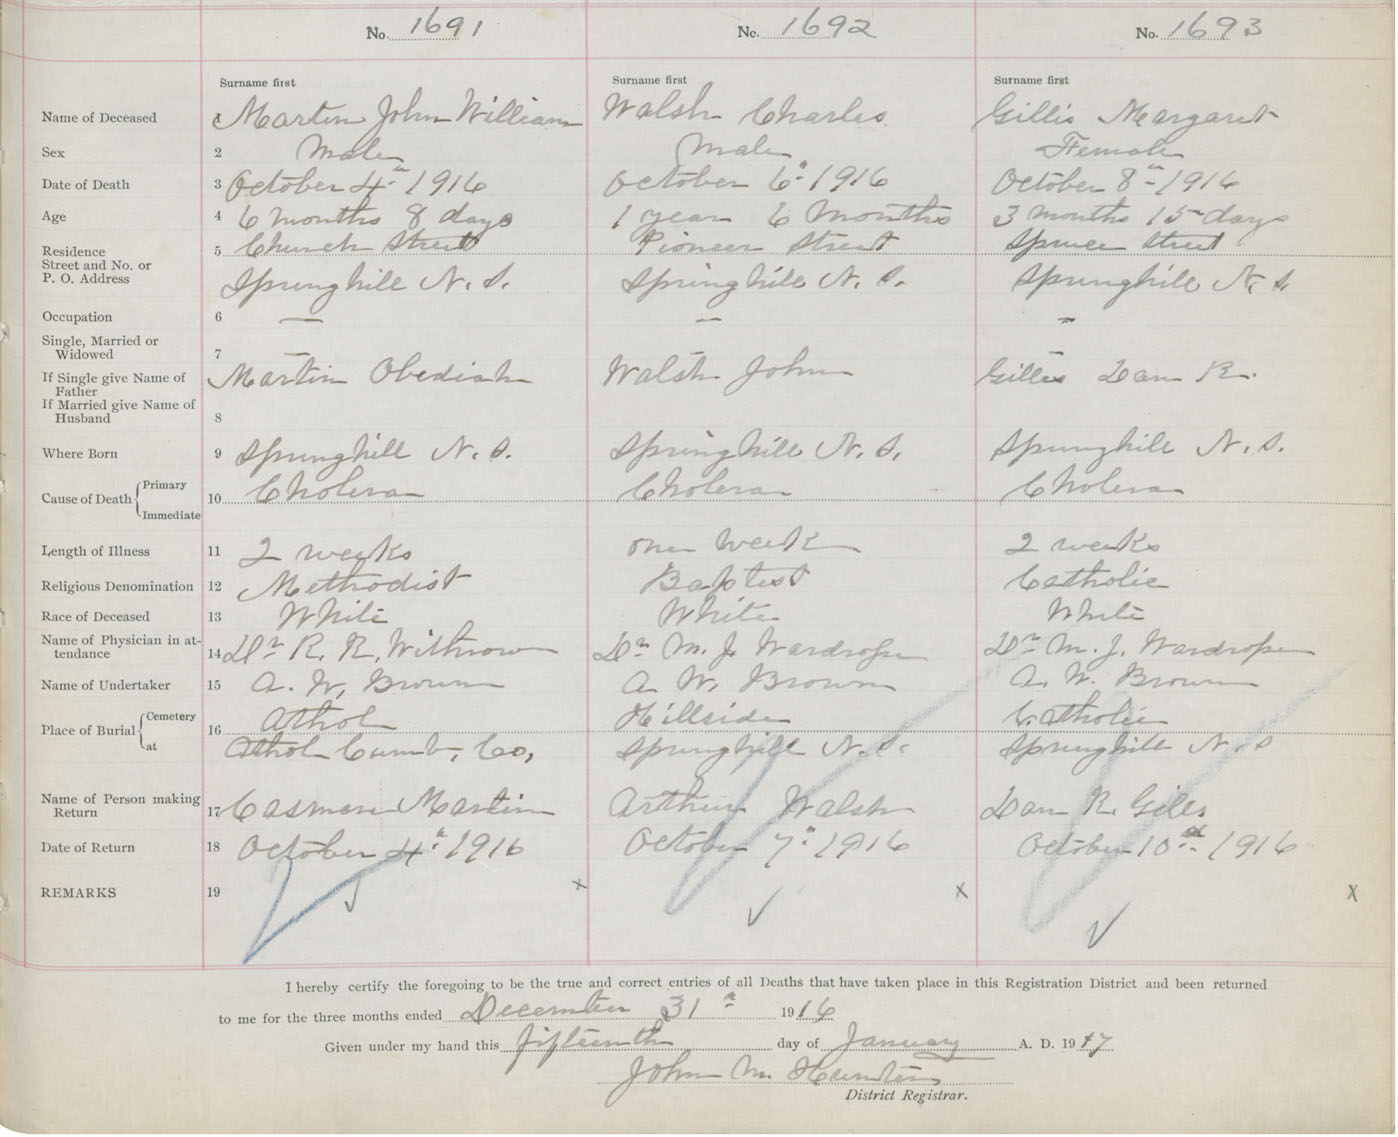 No. 1691 No. 1692 No. 1693
Surname first Surname first Surname first
Name of Deceased 1 Martin John William Walsh Charles Gillis Margaret
Sex 2 Male Male Female
Date of Death 3 October 4th 1916 October 6th 1916 October 8th 1916
Age 4 6 months 8 days 1 year 6 Months 3 months 15 days
Residence 5 Church Street Pioneer Street Spruce Street
Street and No. or
P. O. Address Springhill N. S. Springhill N. S. Springhill N. S.
Occupation 6 — — —
Single, Married or
Widowed 7 — —
If Single give Name of Martin Obediah Walsh John Gillis Dan R.
Father
If Married give Name of
Husband 8
Where Born 9 Springhill N. S. Springhill N. S. Springhill N. S.
Cause of Death Primary 10 Cholera Cholera Cholera
Immediate
Length of Illness 11 2 weeks one week 2 weeks
Religious Denomination 12 Methodist Baptist Catholic
Race of Deceased 13 White White White
Name of Physician in at-
tendance 14 Dr R. R. Withrow Dr M. J. Wardrope Dr M. J. Wardrope
Name of Undertaker 15 A. W. Brown A. W. Brown A. W. Brown
Place of Burial Cemetery 16 Athol Hillside Catholic
at Athol Cumb. Co, Springhill N. S. Springhill N. S
Name of Person making
Return 17 Casmere Martin Arthur Walsh Dan R. Gillis
Date of Return 18 October 4th 1916 October 7th 1916 October 10th 1916
REMARKS 19 x x x
I hereby certify the foregoing to be the true and correct entries of all Deaths that have taken place in this Registration District and been returned
to me for the three months ended December 31st 1916
Given under my hand this fifteenth day of January A. D. 1917
John M. Hunter
District Registrar.